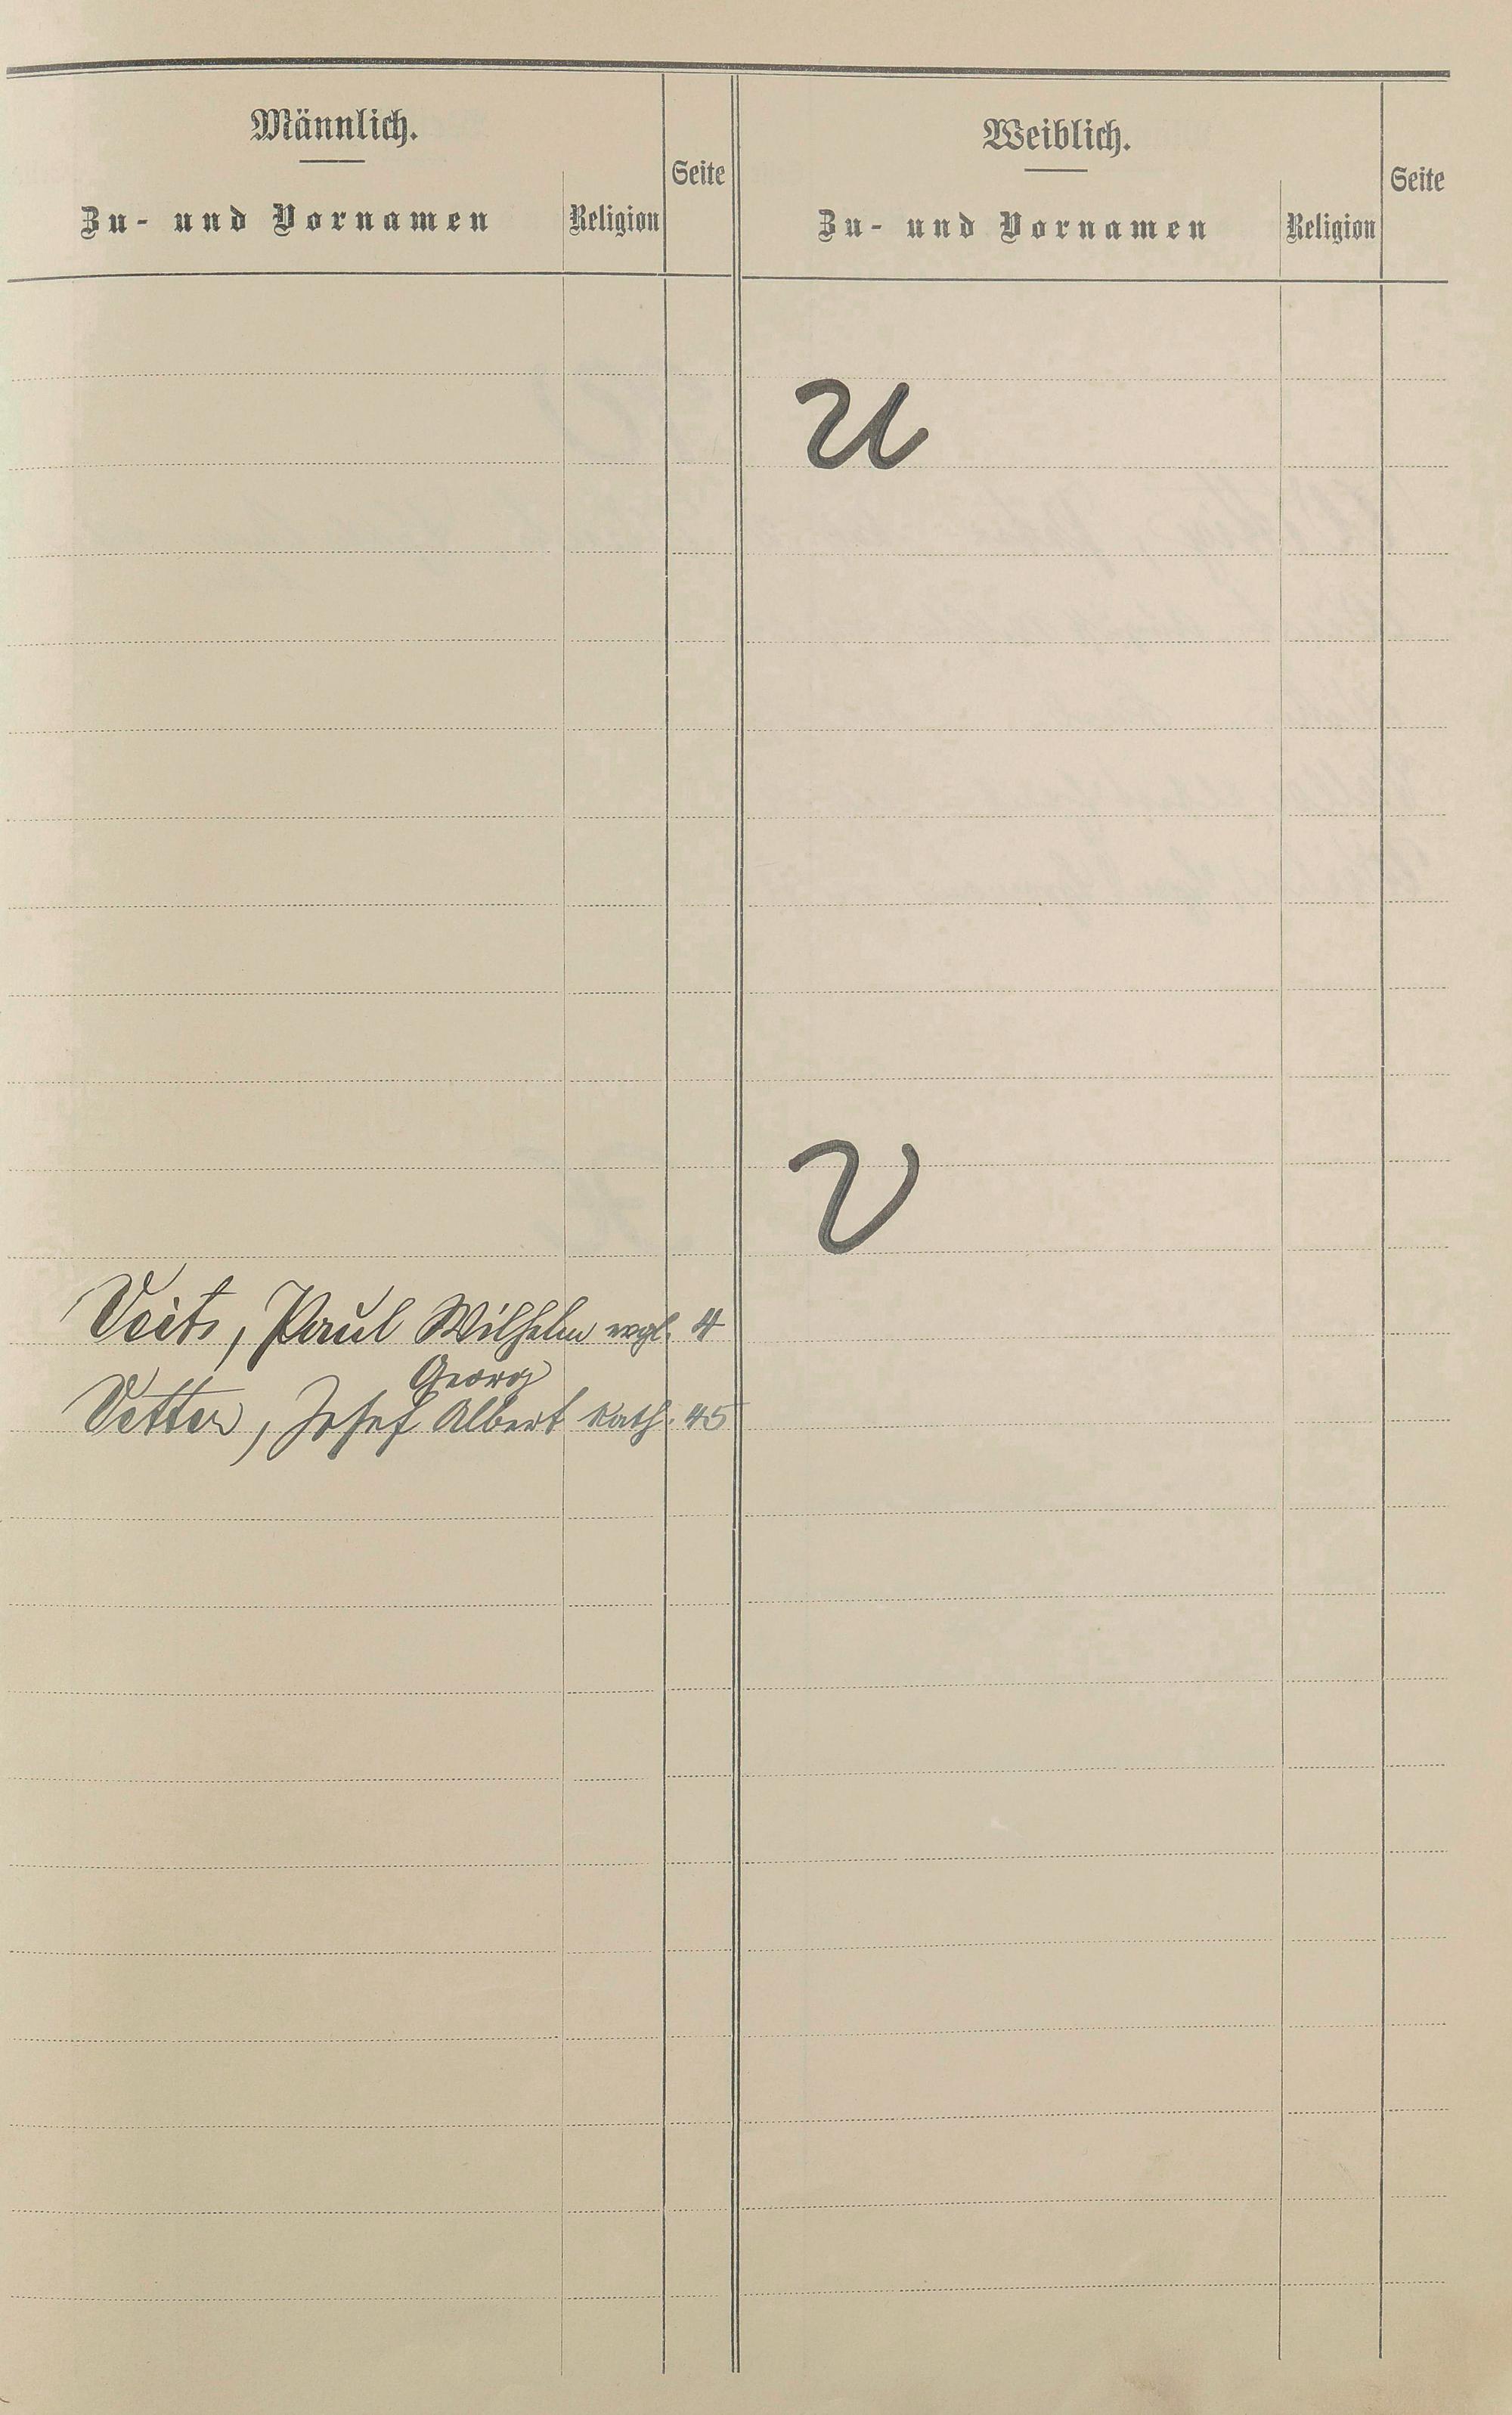 Männlich.
Zu- und Vornamen
Religion
Seite
Weiblich.
Zu- und Vornamen
Religion
Seite
U
V
Veit, Paul Wilhelm evgl. 4
Georg
Vetter, Josef Albert kath. 45